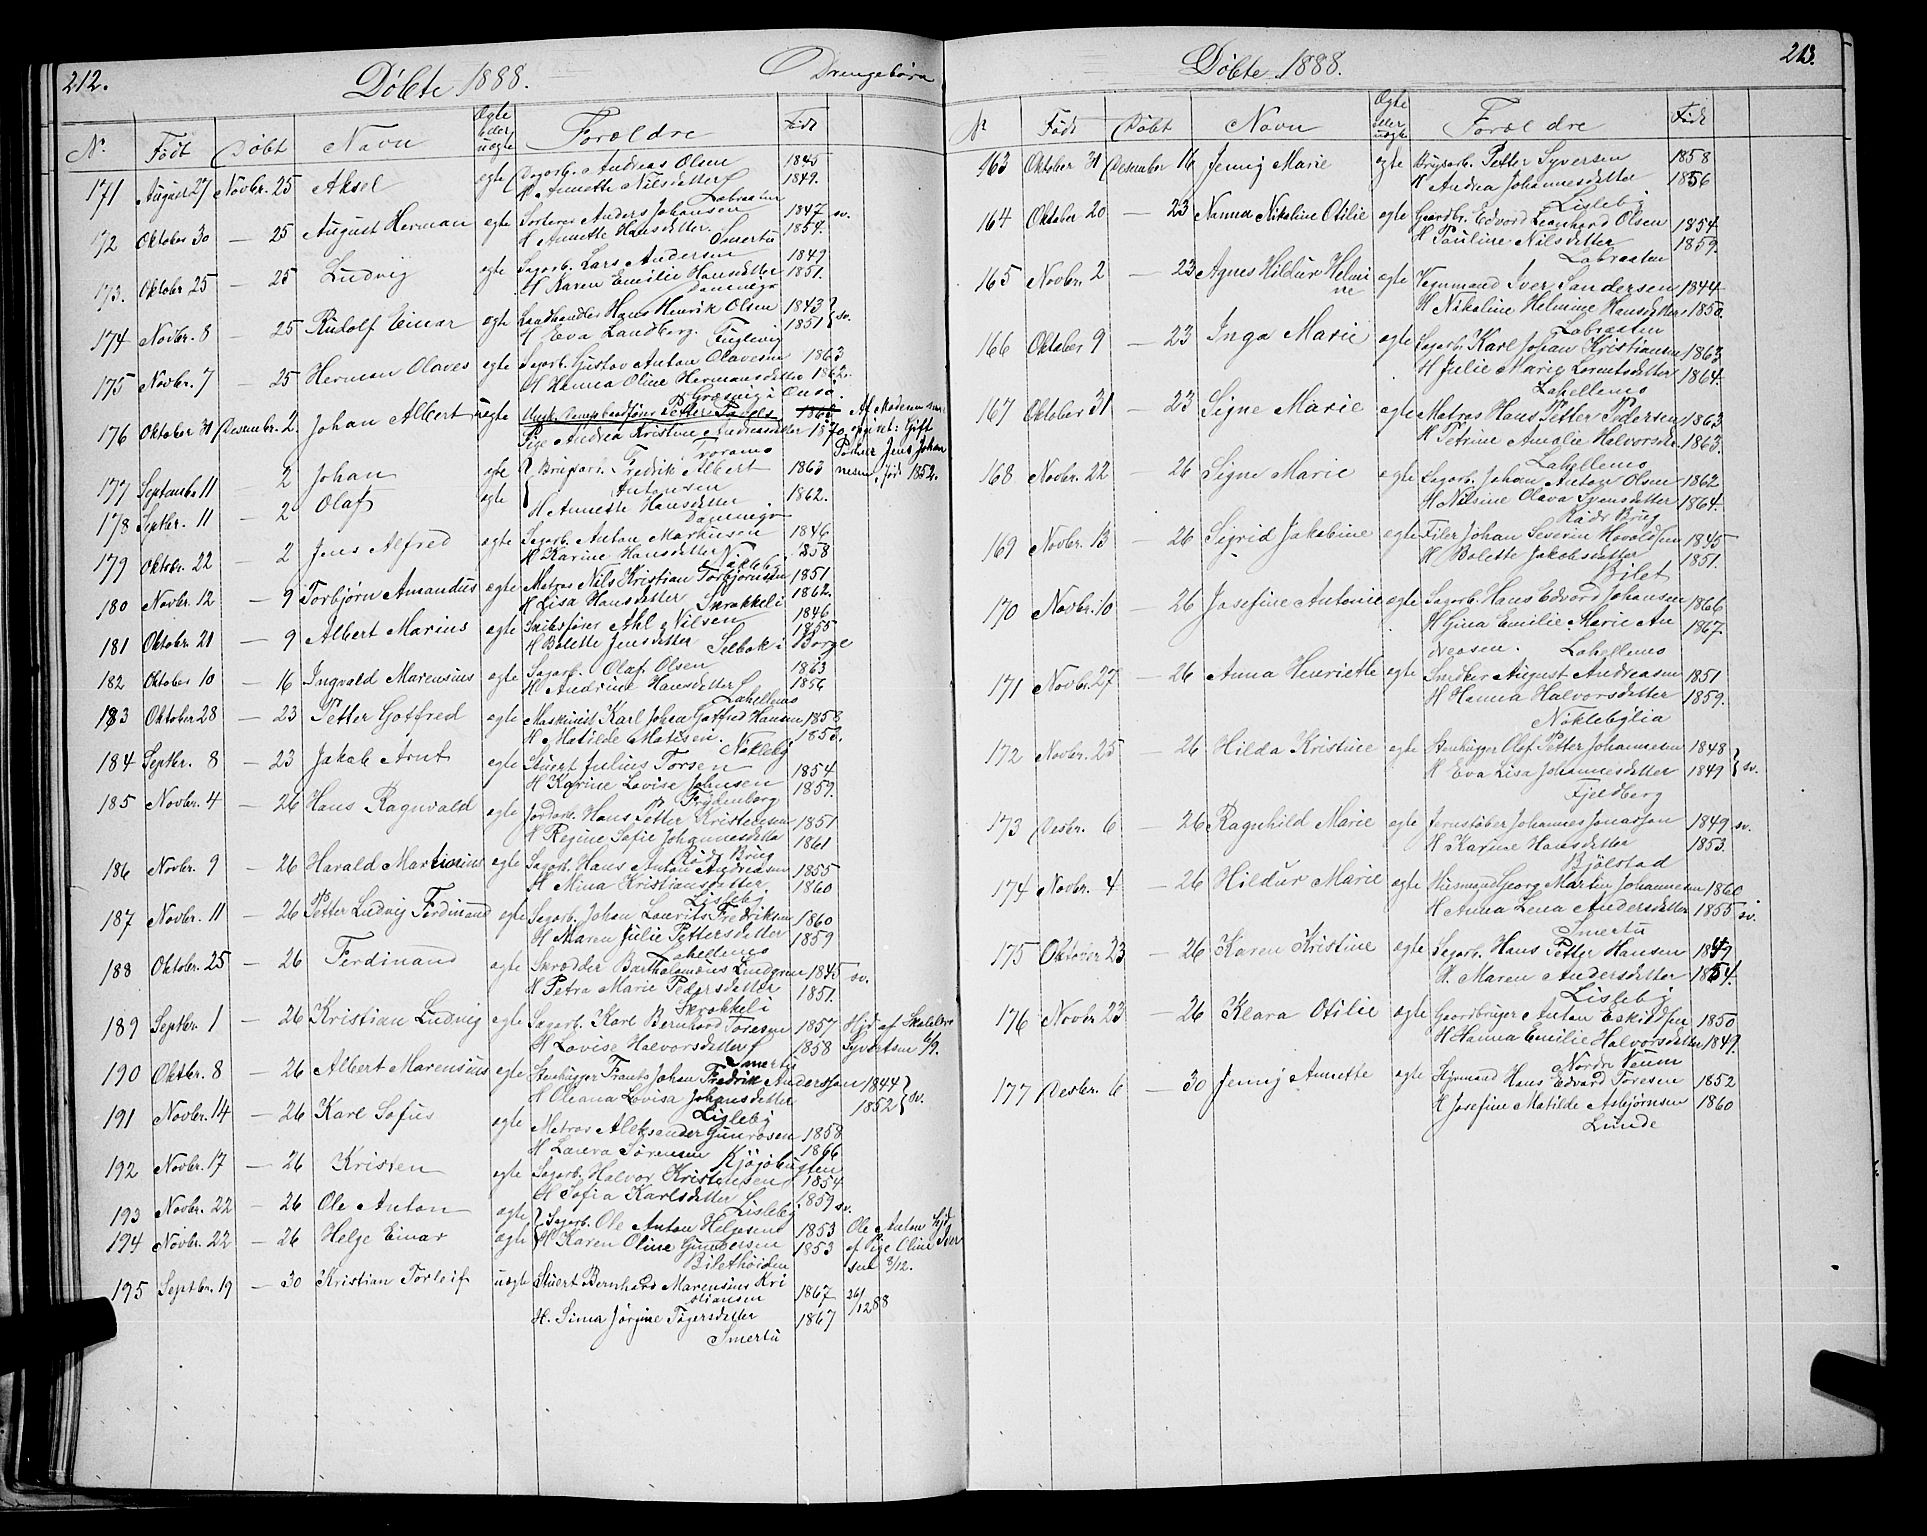 212.
Döbte 1888.
Drengebörn
N. Födt Döbt Navn Ægte eller uægte Forældre Födt
171 August 27 Novbr. 25 Aksel egte Dagarb. Andreas Olsen 1845
H Annette Nilsdetter 1849.
Labraaten
172 Oktober 30 — 25 August Herman egte Sorterer Anders Johansen 1847 sv.
H Annette Hansdetter. 1854.
Smertu
173. Oktober 25 — 25 Ludvig egte Sagarb. Lars Andersen 1849
H Karen Emilie Hansdetter 1851.
Dammegr
174 Novbr. 8 — 25 Rudolf Einar egte Landhandler Hans Henrik Olsen 1843 sv.
H Eva Landberg. 1851
Fuglevig
175 Novbr. 7 — 25 Herman Olaves egte Sagarb. Gustav Anton Olavesen 1863
H Hanna Oline Hermansdetter 1862.
Græsvig i Onsö.
176 Oktober 31 Desembr. 2. Johan Albert uegte Petter 1868 Af Moderen
Pige Andrea Kristine Andreasdetter 1870 opgivet: Gift
Traramo Jens Johan
177 Septembr 11 — 2 Johan egte Brugsarb. Fredrik Albert 1863 nesen, föd 1852.
Antonsen
178 Septbr. 11 — 2 Olaf egte H Annette Hansdetter 1862.
Dammegr
179 Oktbr. 22 — 2 Jens Alfred egte Sagarb. Anton Markusen 1846
H Karine Hansdetter 1858
Nökleby
180 Novbr. 12 — 9 Torbjörn Amandus egte Matros Nils Kristian Torbjörnsen 1851
H Lisa Hansdetter Skrakkeli 1862.
181 Oktobr. 21 — 9 Albert Marius egte Skibsförer Ahl Nilsen 1846
H Bolette Jensdetter 1855
Selbak i Borge
182 Oktober 10 — 16 Ingvald Marensius egte Sagarb. Olaf Olsen 1863
H Andrine Hansdetter 1856
Lahellemo
183 Oktober 28 — 23 Petter Gotfred egte Maskinist Karl Johan Gotfred Hansen 1858
H Matilde Matisen. 1853.
Nökleby
184 Septbr. 8 — 23 Jakob Arnt egte Stuert Julius Torsen 1854
H Karine Lovise Johnsen 1859.
Frydenborg
185 Novbr. 4 — 26 Hans Ragnvald egte Jordarb. Hans Petter Kristensen 1851
H Regine Sofie Johannesdetter 1861
Råds Brug
186 Novbr. 9 — 26 Harald Martinius egte Sagarb. Hans Anton Andreasen 1855
H Mina Kristiansdetter. 1860
Lisleby
187 Novbr. 11 — 26 Petter Ludvig Ferdinand egte Sagarb. Johan Laurits Fredriksen 1860
H Maren Julie Pettersdetter 1859
Lahellemo
188 Oktobr. 25 — 26 Ferdinand egte Skrædder Bartholomæus Lindgren 1845 sv.
H Petra Marie Pedersdetter 1851.
Skrakkeli
189 Septbr. 1 — 26 Kristian Ludvig egte Sagarb. Karl Bernhard Toresen 1857 Hjd af Skolelærer
H Lovise Halvorsdetter 1858 Syvertsen 6/9.
Smertu
190 Oktbr. 8 — 26 Albert Marensius egte Stenhugger Frants Johan Fredrik Andersson 1844 sv.
H Oleana Lovisa Johansdetter 1852
Lisleby
191 Novbr. 14 — 26 Karl Sofus egte Matros Aleksander Gunrosen 1858
H Laura Sörensen 1866
Kjöjöbugten
192 Novbr. 17 — 26 Kristen egte Sagarb. Halvor Kristensen 1854
H Sofia Karlsdetter 1859 sv.
Lisleby
193 Novbr. 22 — 26 Ole Anton egte Sagarb. Ole Anton Helgesen 1853 Ole Anton Hjd
194 Novbr. 22 — 26 Helge Einar egte H Karen Oline Gundersen 1853 af Pige Oline Iver
Bilethöiden sen 3/12.
195 Septbr. 19 — 30 Kristian Torleif uegte Stuert Bernhard Marensius Kri 1867 26/12 88
stiansen
H. Sina Jörgine Tögersdetter 1867
Smertu
Döbte 1888.
213.
N Födt Döbt Navn Ægte eller uægte Forældre Födt
163 Oktober 31 Desember 16 Jenny Marie egte Brugsarb. Petter Syversen 1858
H Andrea Johannesdetter 1856
Lisleby
164 Oktober 20 — 23 Nanna Nikoline Otilie egte Gaardbr. Edvard Leonhard Olsen 1854.
H Pauline Nilsdetter 1859.
Labraaten
165 Novbr. 2 — 23 Agnes Hildur Helmi egte Vognmand Iver Sandersen 1844
ne H Nikoline Helmine Hansdetter 1850.
Labraaten
166 Oktober 9 — 23 Inga Marie egte Sagarb. Karl Johan Kristiansen 1863
H Julie Marie Lorentsdetter 1864.
Lahellemo
167 Oktober 31 — 23 Signe Marie egte Matros Hans Petter Pedersen 1863
H Petrine Amalie Halvorsdr 1863.
Lahellemo
168 Novbr. 22 26 Signe Marie egte Sagarb. Johan Anton Olsen 1862
H Nilsine Olava Svensdetter 1864.
Råds Brug
169 Novbr. 13 — 26 Sigrid Jakobine egte Filer Johan Severin Havoldsen 1845
H. Bolette Jakobsdetter 1851.
Bilet
170 Novbr. 10 — 26 Josefine Antonie egte Sagarb. Hans Edvard Johansen 1866
H Gina Emilie Marie An 1867.
dreasen. Lahellemo
171 Novbr. 27 — 26 Anna Henriette egte Snedker August Andreasen 1851
H Hanna Halvorsdetter 1859.
Nöklebylia
172 Novbr. 25 — 26 Hilda Kristine egte Stenhugger Olof Petter Johannesen 1848 sv.
H Eva Lisa Johannesdetter 1849
Fjeldberg
173 Desbr. 6 — 26 Ragnhild Marie egte Jernstöber Johannes Jonasson 1849 sv.
H Karine Hansdetter 1853.
Bjölstad
174 Novbr. 4 — 26 Hildur Marie egte Husmand Georg Martin Johannesen 1860
H Anna Lena Andersdetter 1855 sv.
Smertu
175 Oktober 23 — 26 Karen Kristine egte Sagarb. Hans Petter Hansen 1849
H. Maren Andersdetter 1854.
Lisleby
176 Novbr 23 — 26 Klara Otilie egte Gaardbruger Anton Eskildsen 1850
H Hanna Emilie Halvorsdetter 1849.
Nordre Veum
177 Desbr. 6 — 30 Jenny Annette egte Styrmand Hans Edvard Toresen 1852
H Josefine Matilde Asbjörnsen 1860
Lunde